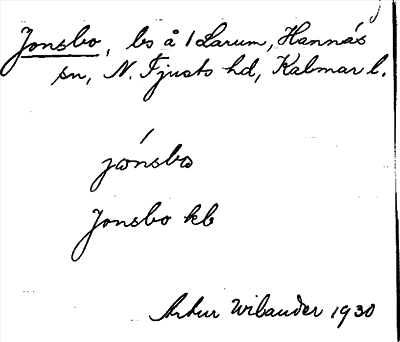 Jonsbo, bs å 1 Larum, Hannäs
sn, N. Tjusts hd, Kalmar l.
jónsbo
Jonsbo kb
Artur Wilander 1930